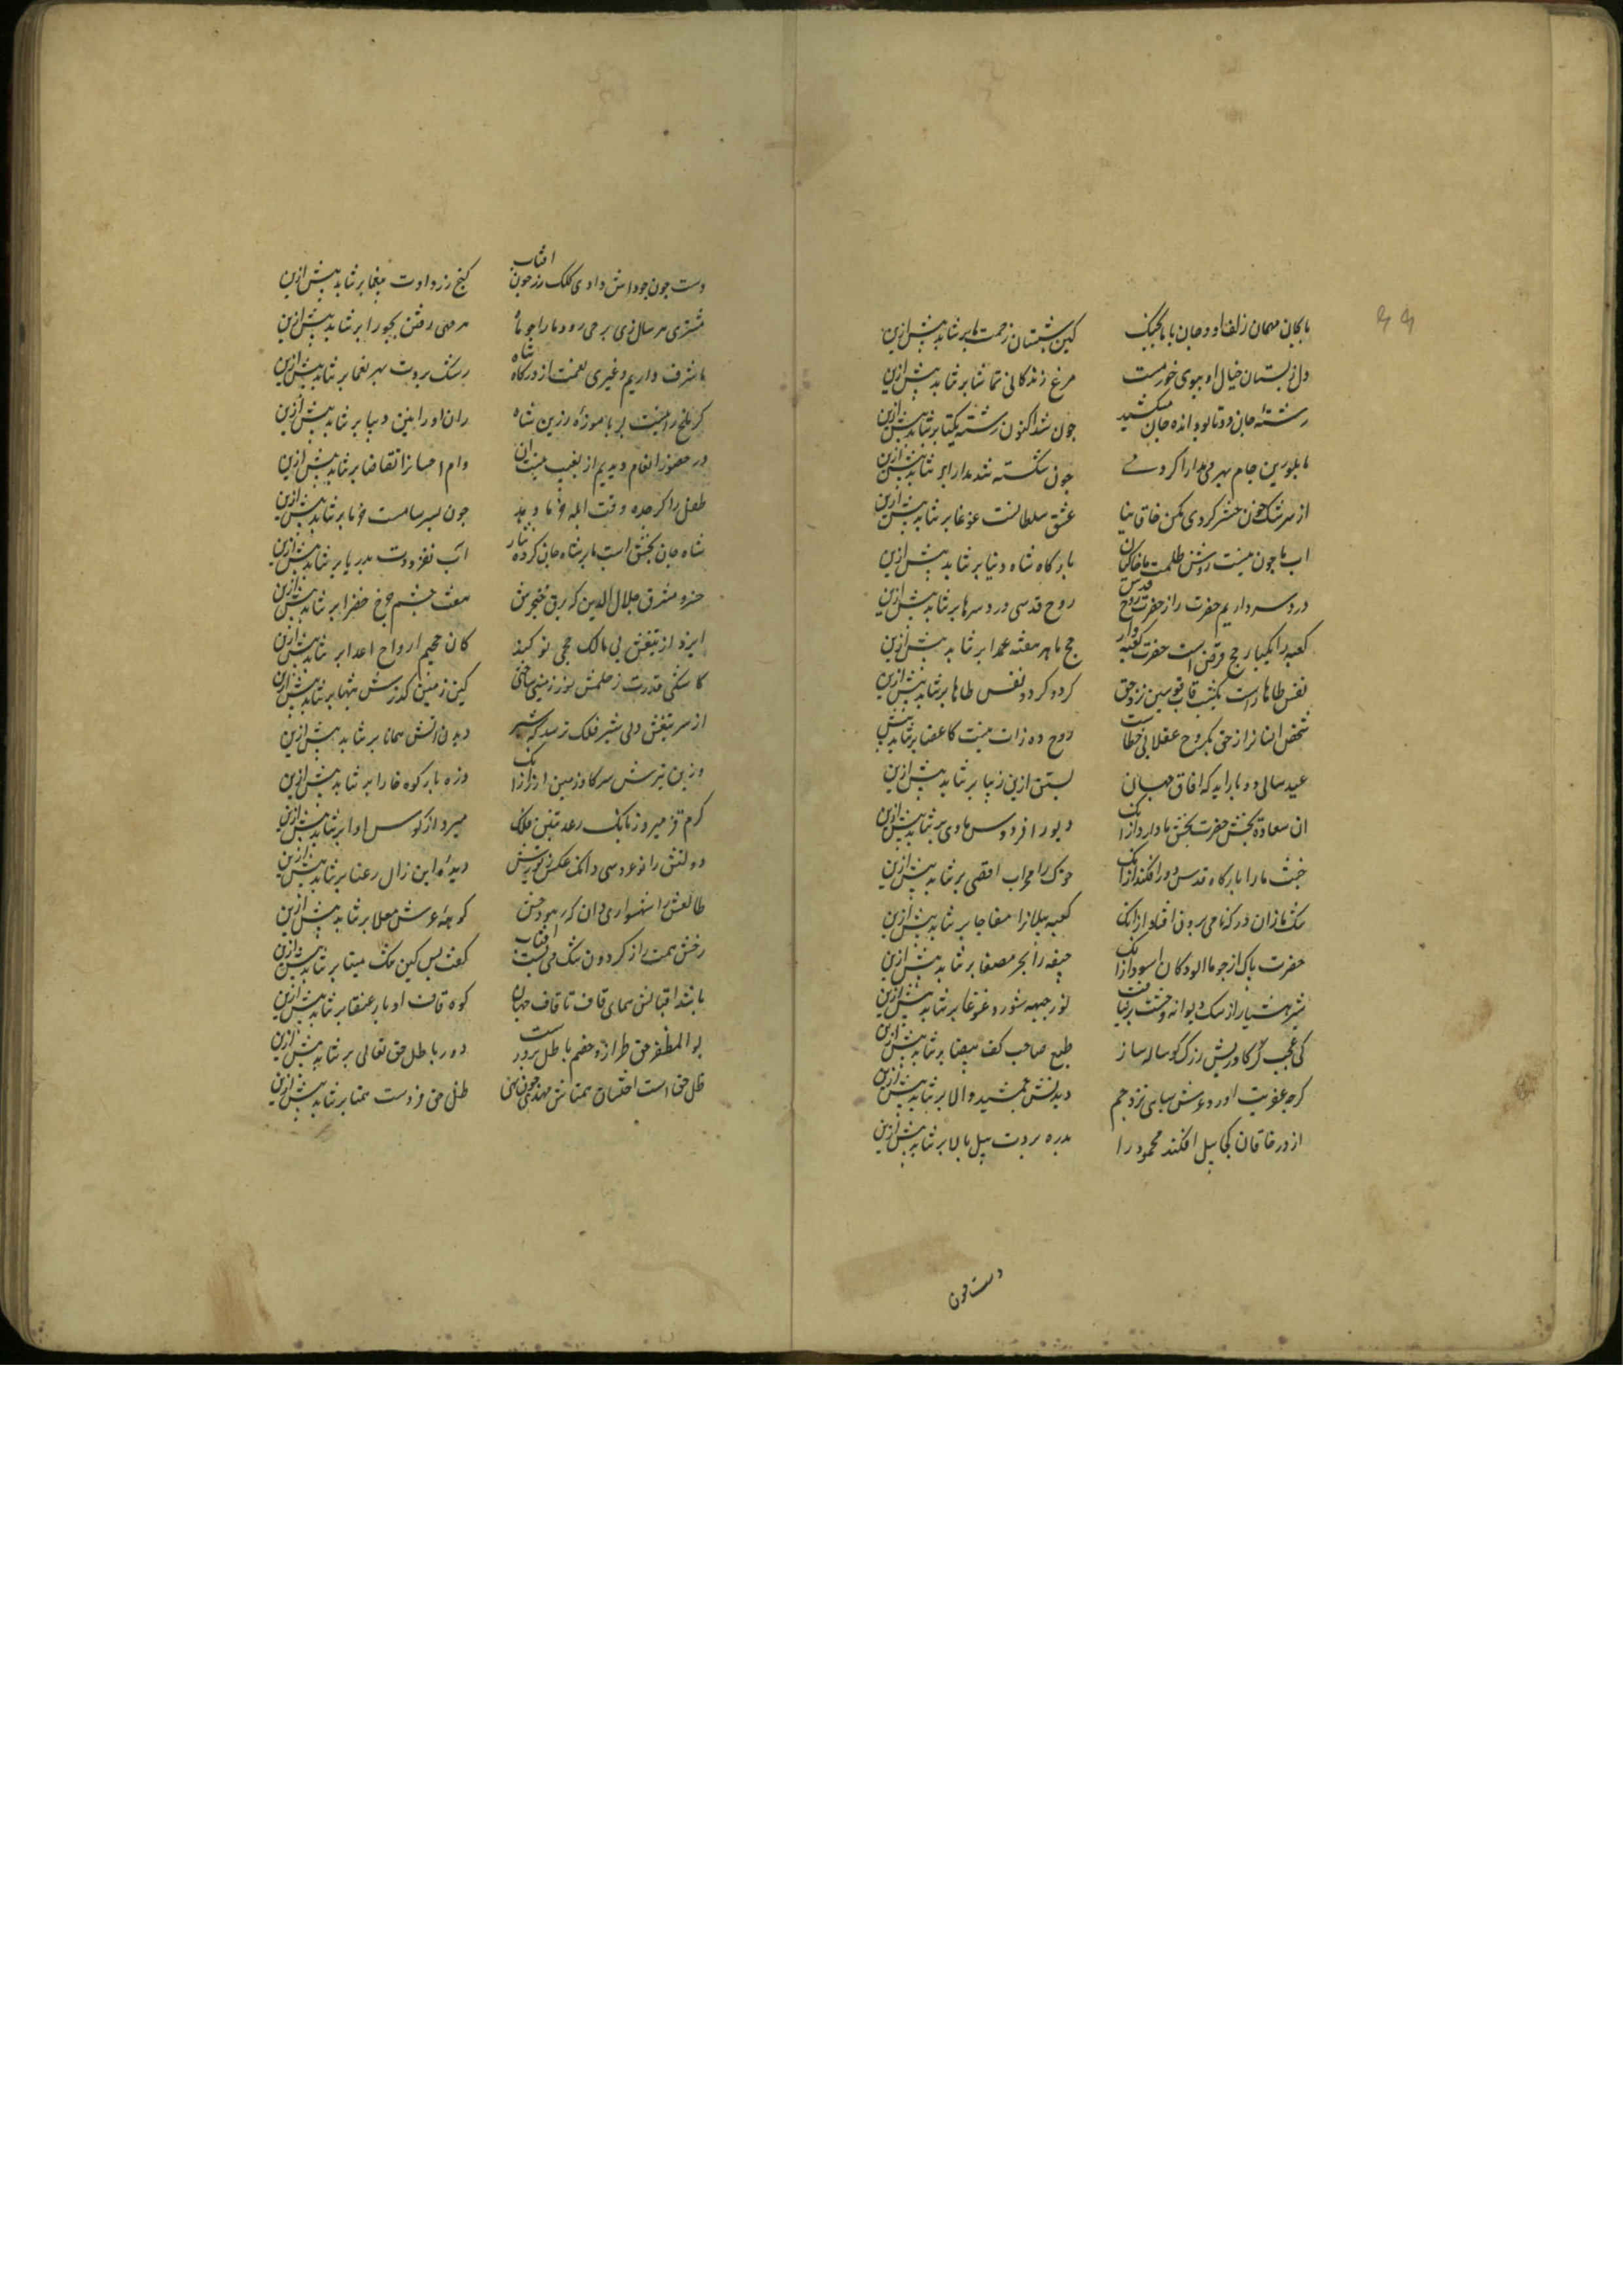 ما بجان مهمان زلف او و جان با ما بجنگ
کین شبستان زحمت ما بر نتابد بیش ازین
دل ز بستان خیال او ببوی خرمست
مرغ زندگانی تماشا بر نتابد بیش ازین
رشتهٔ جان دو تا بود انده جان میکشید
چون شد اکنون رشته یکتا بر نتابد بیش ازین
با بلورین جام بهر می مدارا کردمی
چون شکسته شد مدارا بر نتابد بیش ازین
از سرشک خون حشر کردی مکن خاقانیا
عشق سلطانست غوغا بر نتابد بیش ازین
اب ما چون نیست روشن ظلمت ما خاکیان
بارگاه شاه دنیا بر نتابد بیش ازین
درد سر داریم حضرت را ز حضرت روح قدس
روح قدسی درد سرها بر نتابد بیش ازین
کعبه را یکبار حج فرض است حضرت کعبه وار
حج ما هر هفته عمدا بر نتابد بیش ازین
نفس طاها راست یکشب قاب قوسین نزد حق
کرد کرد و نفس طاها بر نتابد بیش ازین
شخص انسانرا ز حق یکروح عقلانی خطاست
روح ده زانت نیست کاعضا بر نتابد بیش
عید سالی دو بار اید که افاق جهان
بستن ازین زیبا بر نتابد بیش ازین
ان سعادة بخش حضرت بخش ما دارد از انک
دیو را فردوس ماوی بر نتابد بیش ازین
خبث ما را بارگاه قدس دور افکند از انک
خوک را محراب اقصی بر نتابد بیش ازین
سگ نمازان درگه نامی برون افتاد از انک
کعبه پیلانرا مفاجا بر نتابد بیش ازین
حضرت پاک از چو ما الودگان اسود از انک
جیفه را بحر مصفا بر نتابد بیش ازین
شیر هشیار از سگ دیوانه وحشت بر نیافت
نور جبهه شور و غوغا بر نتابد بیش ازین
کی عجب گر گاو ریش زرگر گوساله ساز
طبع صاحب کف بیضا بر نتابد بیش ازین
گرچه عفریت اورد عرش سبایی نزد جم
دیدنش جمشید والا بر نتابد بیش ازین
از در خاقان کجا پیل افکند محمود را
بدره بردت پیل بالا بر نتابد بیش ازین
دست چون
دست چون جود انش دادی کلک زر چون افتاب
گنج زر دادت یغما بر نتابد بیش ازین
مشتری هر سال زی برجی رود ما را چو ماه
هر مهی رفتن بجوزا بر نتابد بیش ازین
ما شرف داریم و غیری نعمت از درگاه شاه
رشک بردت بهر نعما بر نتابد بیش ازین
گر ملخ را نیست بر پا موزهٔ زرین شاه
ران او رانین دیبا بر نتابد بیش ازین
در حضور انعام دیدیم از بغیب نیست ان
وام احسانرا تقاضا بر نتابد بیش ازین
طفل را گر جده وقت ابله خرما دهد
چون بسرسامست خرما بر نتابد بیش ازین
شاه جان بخش است ما بر شاه جان کرده نثار
اب نفزودت بدریا بر نتابد بیش ازین
خسرو مشرق جلال الدین که برق خنجرش
هفت چشم چرخ خضرا بر نتابد بیش ازین
ایزد از تیغش بی مالک جحیمی نو کند
کان جحیم ارواح اعدا بر نتابد بیش ازین
کاشکی قدرت ز حلمش نو زمینی ساختی
کین زمین کز رش تنها بر نتابد بیش ازین
از سر تیغش دل شیر فلک ترسد که شیر
دیدن اتش همانا بر نتابد بیش ازین
وز بن تیرش سر گاو زمین لرزد از انک
وزه بار کوه خارا بر نتابد بیش ازین
کرم قز میرد ز بانگ رعد تنین فلک
میرد از کوس او اوا بر نتابد بیش ازین
دولتش را نوعروسی دانک عکس زیورش
دیدهٔ این زال رعنا بر نتابد بیش ازین
طالعش را شهسواری دان که بهر هودجش
کوههٔ عرش معلا بر نتابد بیش ازین
رخش همت را ز گردون تنگ می بست افتاب
گفت بس کین تنگ مینا بر نتابد بیش ازین
تا بشد اقبالش همای قاف تا قاف جهان
کوه قاف ادبار عنقا بر نتابد بیش ازین
بو المظفر حق طرازد خصم باطل پرورست
دور باطل حق تعالی بر نتابد بیش ازین
ظل حق است اخستان همتاش مهدی چون نهی
ظل حق فردست همتا بر نتابد بیش ازین